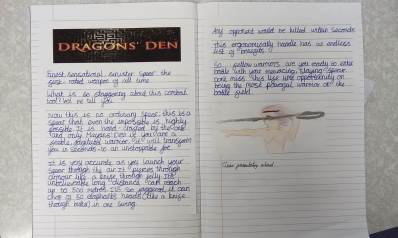 DRAGONS' DEN
finest, sensational, sinister spear the
rated weapon of all time.
What is so staggering about this combat
tool? let me tell you
Now this is no ordinary spear: this is a
spear that even the impossible is highly
possible. It is hand - crafted by the
and only Mayans. Even if you are a
feeble, warrior, it will transform
you in seconds to an unstoppable foe.
It is very accurate as you launch your
spear through the air. It pierces through
armour like a knife through jelly. Its
unbelievable long distance can reach
up to 500 metres. It's so it can
chop of 50 elephants heads (like a knife
through butter) in one swing.
Any opponent would be killed within seconds.
This ergonomically handle has an endless
list of
So, fellow warriors are you ready to enter
battle with your menacing, slaying spear.
Dont miss this life time opportunity on
being the most warrior on the
battle field.